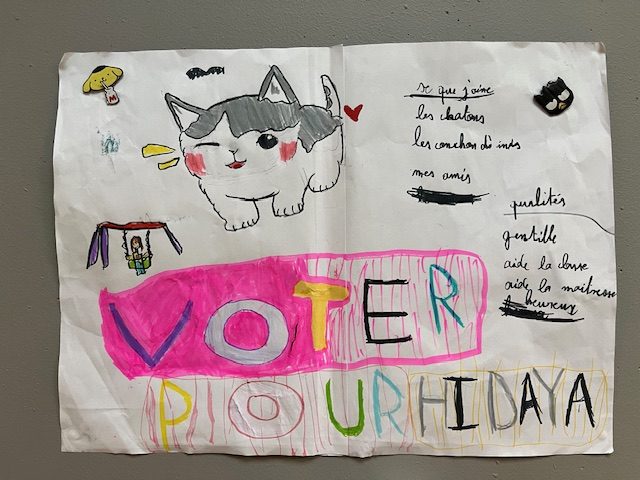 se que j'aime
les chatons
les conchon
mes amis
qualités
gentille
aide la
aide la maitresse
heureux
VOTER
POUR HIDAYA